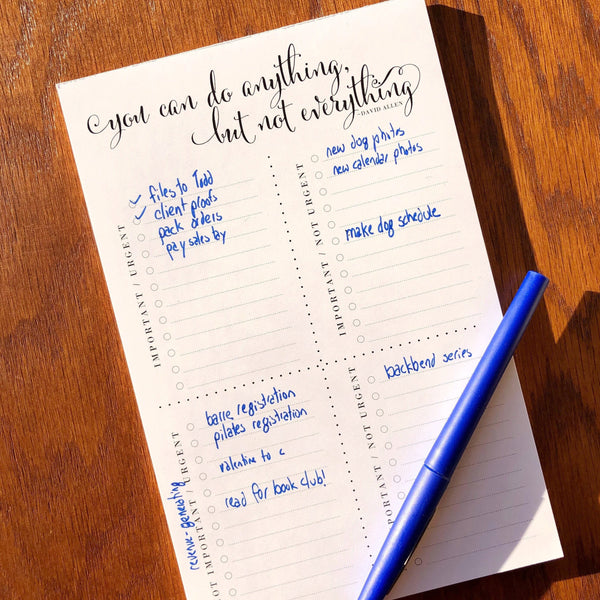 you can do anything,
but not everything
-DAVID ALLEN
IMPORTANT / URGENT
✓ files to Todd
✓ client proofs
pack orders
pay sales tax
IMPORTANT / NOT URGENT
new dog photos
new calendar photos
make dog schedule
revenue-generating
NOT IMPORTANT / URGENT
barre registration
pilates registration
valentine to c
read for book club!
IMPORTANT / NOT URGENT
backbend series